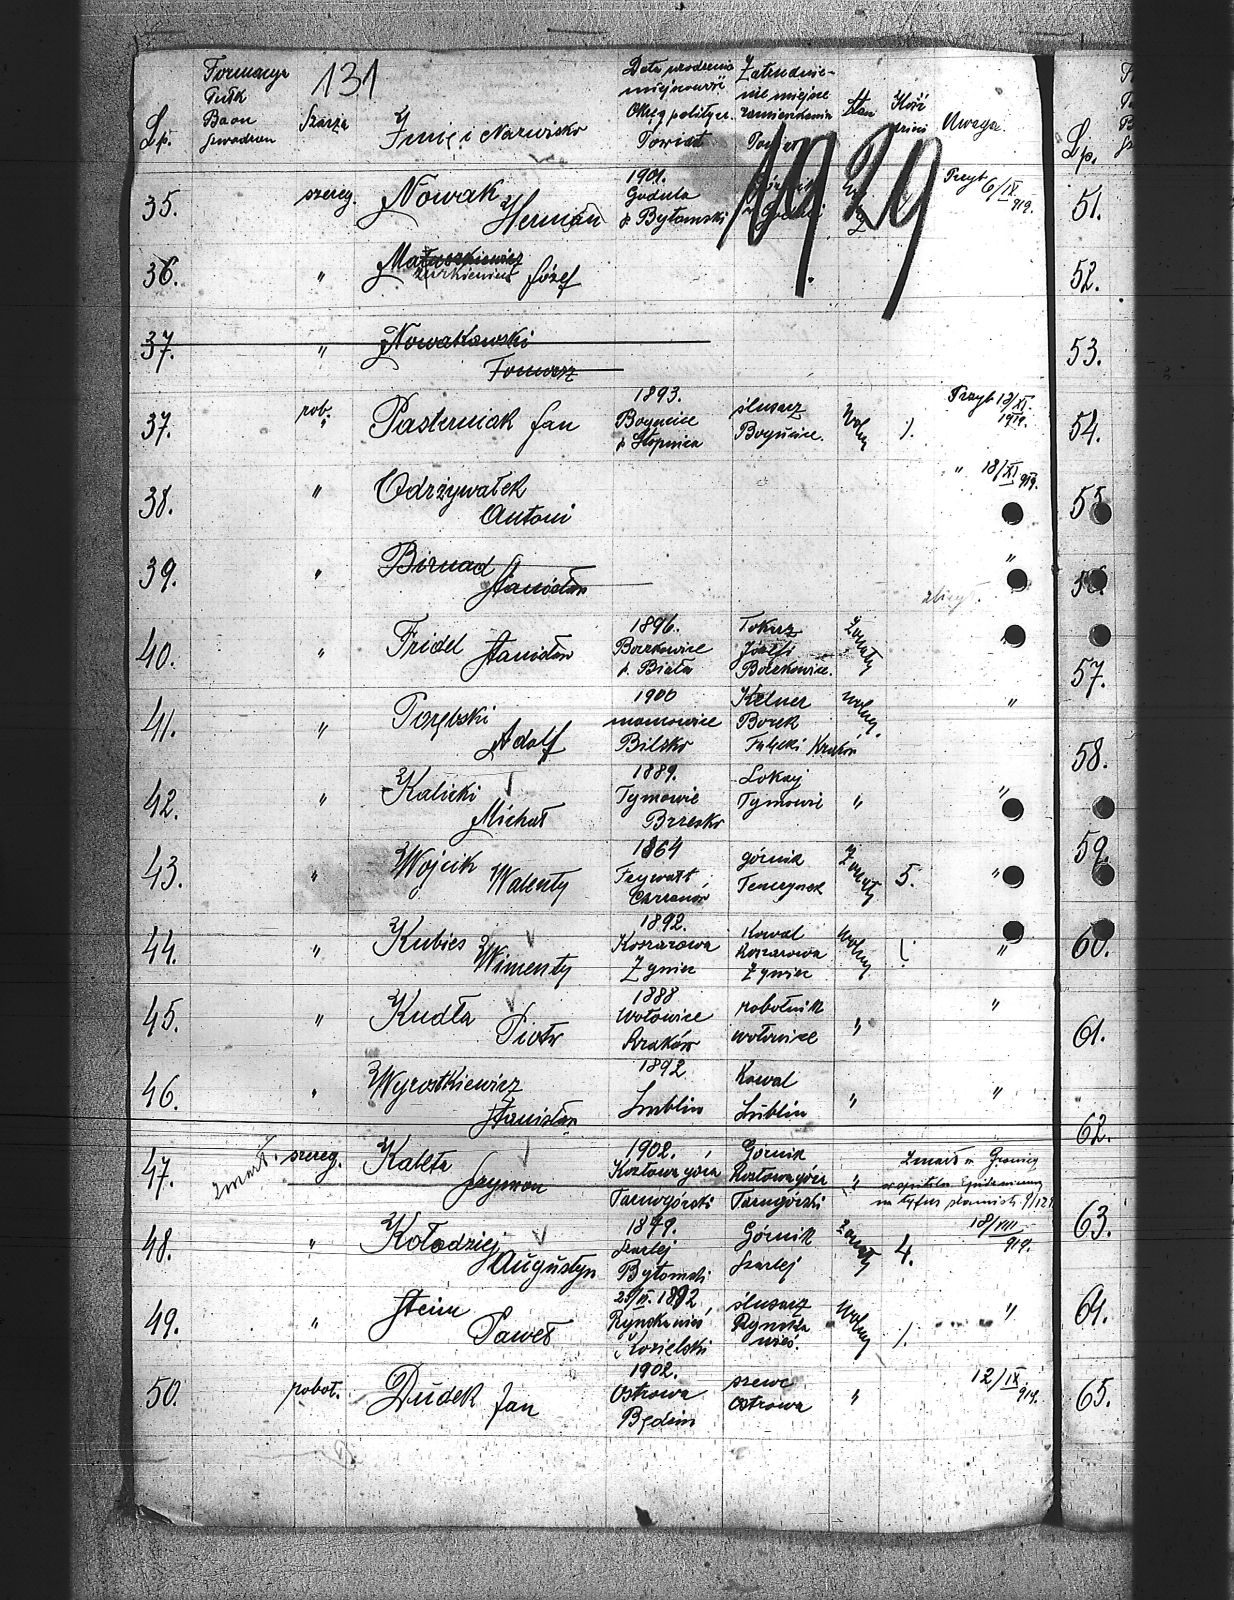 131
Lp.
Formacya
Pułk
Baon
Szwadron
Szarża
Imię i Nazwisko
Data urodzenia
miejscowość
Okręg polityczn.
Powiat
Zatrudnie-
nie miejsce
zamieszkania
Powiat
Stan
Ilość
dzieci
Uwaga.
1929
35. szereg. Nowak Herman 1901. Godula p Bytomski Przyb 6/IX 919.
36. " Józef
37. " Nowakowski Tomasz
37. rob. Pasterniak Jan 1893. Bogucice p Stopnica ślusarz Bogucice. Wolny /. Przyb 12/XI 1919.
38. " Odrzywałek Antoni " 18/XI 919.
39. " Birnad Stanisław "
40. " Fridel Stanisław 1896. Borzkowice p. Biała Tokarz Józefi Borzkowice. Żonaty "
41. " Porębski Adolf 1900 Bilsko Kelner Borek Fałęcki Kraków Wolny. "
42. " Kalicki Michał 1889. Tymowie Brzesko Lokaj Tymowie " "
43. " Wojcik Walenty 1864 Frywałt Chrzanów górnik Tenczynek Żonaty 5. "
44. " Kubies Wincenty 1892. Koszarowa Żywiec Kowal Koszarowa Żywiec Wolny /. "
45. " Kudła Piotr 1888 Wołowice Kraków robotnik Wołowice " "
46. " Wyrostkiewicz Stanisław 1892 Lublin Kowal Lublin " "
zmarł.
47. szereg. Kaleta Szymon 1902. Kozłowagóra Tarnogórski Górnik Kozłowagóra Tarnogórski " Zmarł w
48. " Kołodziej Augustyn Szarlej Bytomski Górnik Szarlej Żonaty 4. 18/VIII 919.
49. " Stein Paweł Kozielski ślusarz Wolny /. "
50. robot. Dudek Jan 1902. Ostrowa Będzin szewc Ostrowa " 12/IX 919.
Lp.
51.
52.
53.
54.
55
56.
57.
58.
59.
60.
61.
62.
63.
64.
65.